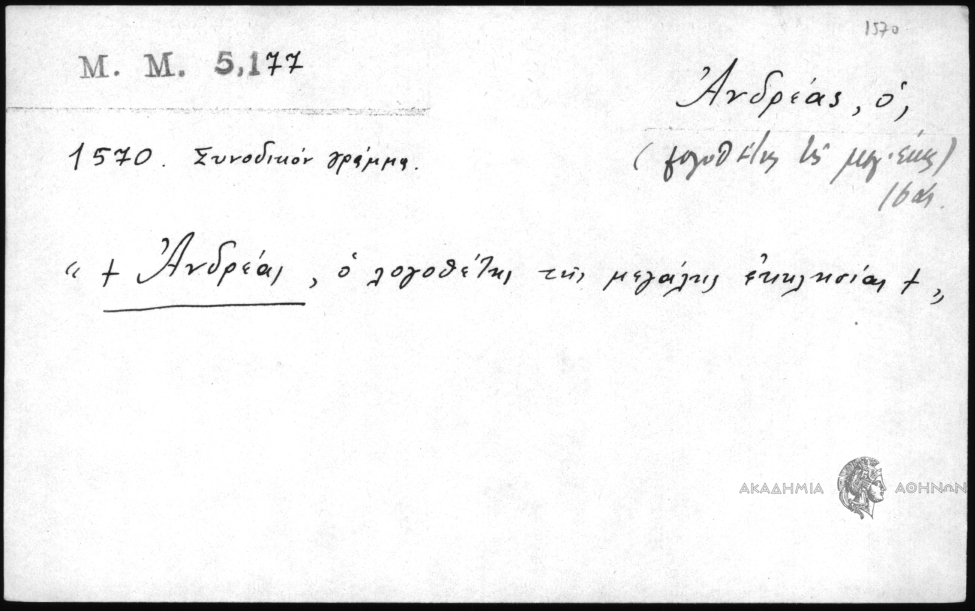 1570
M. M. 5,177
Ἀνδρέας, ὁ,
1570. Συνοδικόν γράμμα.
(λογοθέτης τῆς μεγ. ἐκκ)
" + Ἀνδρέας, ὁ λογοθέτης τῆς μεγάλης ἐκκλησίας + "
ΑΚΑΔΗΜΙΑ ΑΘΗΝΩΝ